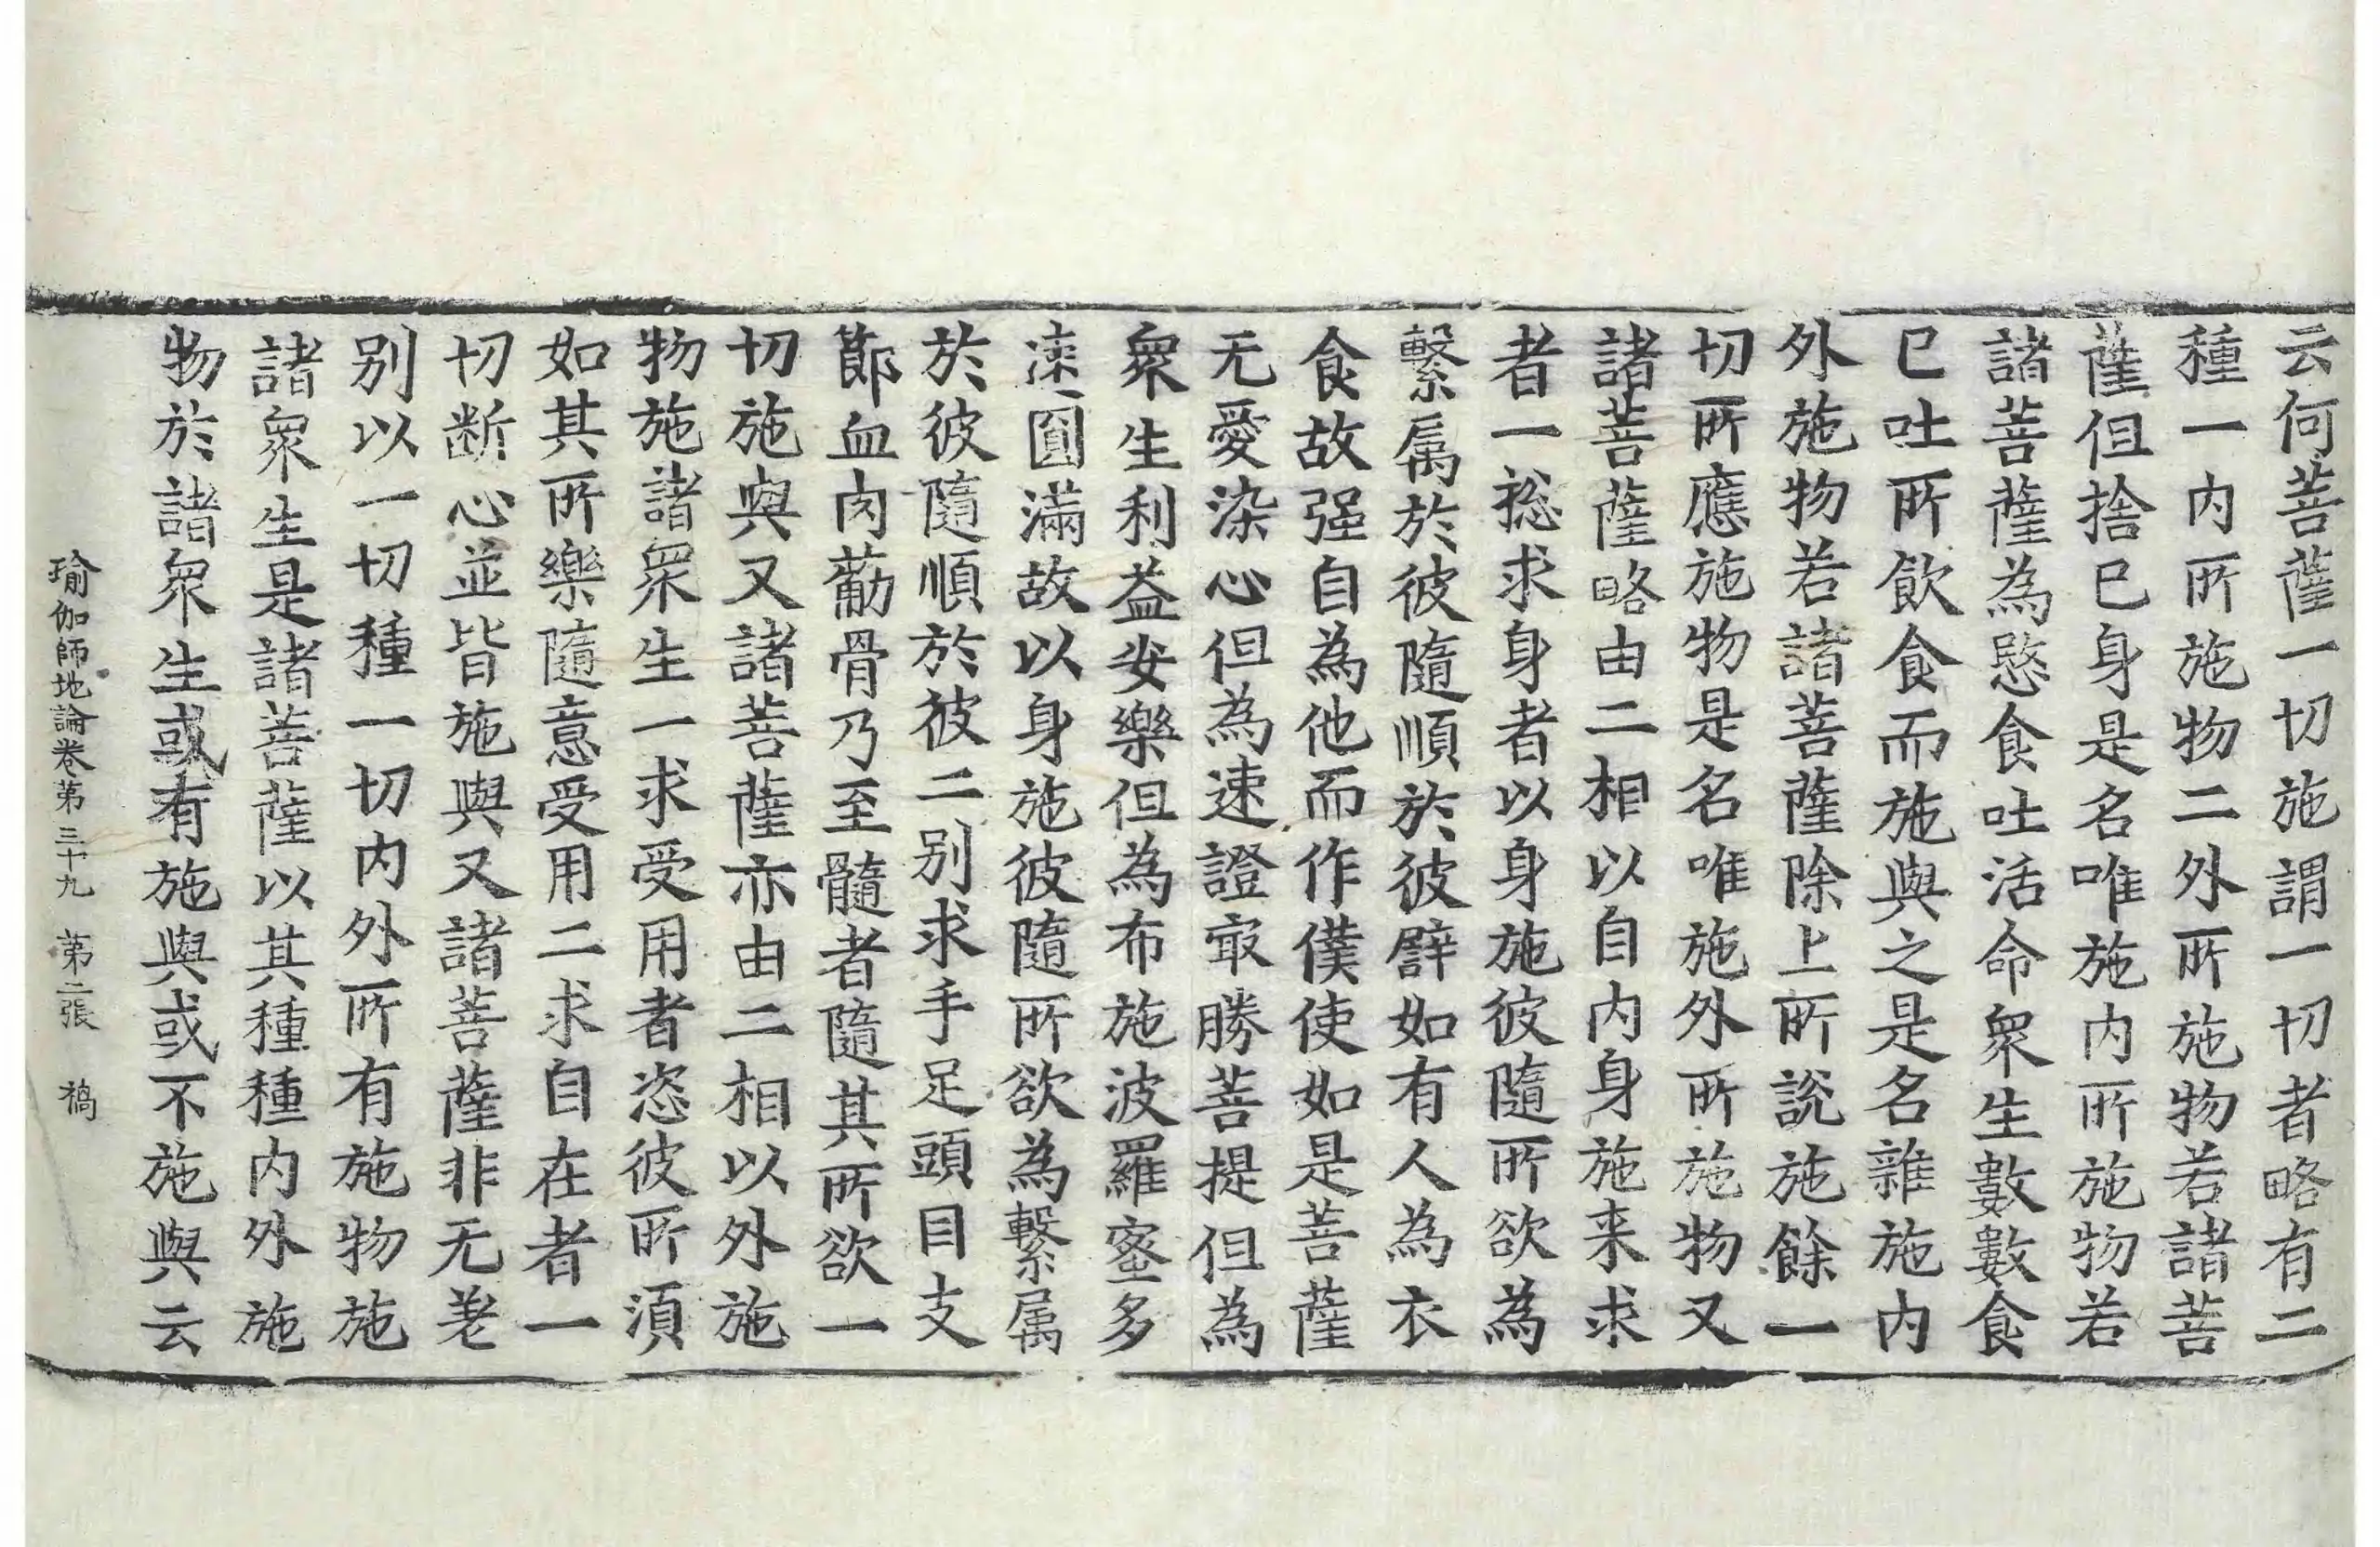 云何菩薩一切施謂一切者略有二
種一内所施物二外所施物若諸菩
薩但捨已身是名唯施内所施物若
諸菩薩為愍食吐活命衆生數數食
已吐所飲食而施與之是名雜施内
外施物若諸菩薩除上所說施餘一
切所應施物是名唯施外所施物又
諸菩薩略由二相以自内身施来求
者一捴求身者以身施彼隨所欲為
繫属於彼隨順於彼譬如有人為衣
食故强自為他而作僕使如是菩薩
无愛染心但為速證㝡勝菩提但為
衆生利益安樂但為布施波羅蜜多
速圓滿故以身施彼隨所欲為繫属
於彼隨順於彼二别求手足頭目支
節血肉筋骨乃至髓者隨其所欲一
切施與又諸菩薩亦由二相以外施
物施諸衆生一求受用者恣彼所須
如其所樂隨意受用二求自在者一
切断心並皆施與又諸菩薩非无差
别以一切種一切内外所有施物施
諸衆生是諸菩薩以其種種内外施
物於諸衆生或有施與或不施與云
瑜伽師地論卷第三十九 第二張 禍